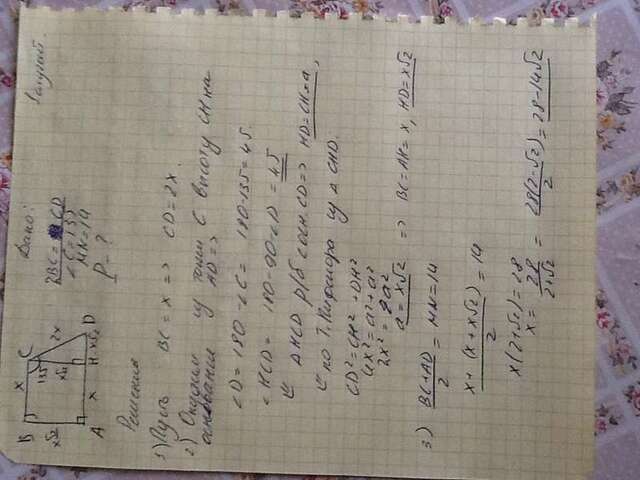 Дано:
2BC = CD
∠C = 135
MN = 14
P = ?
B x C
135
x√2 x√2 2x
A x H x√2 D
Решение
1) Пусть BC = x => CD = 2x.
2) Опустим из точки C высоту CH на
основание AD =>
∠D = 180 - ∠C = 180 - 135 = 45.
∠HCD = 180 - 90 - ∠D = 45
△HCD р/б с осн. CD => HD = CH = a,
по т. Пифагора из △CHD.
CD² = CH² + DH²
4x² = a² + a²
2x² = 2a²
a = x√2 => BC = AH = x, HD = x√2
3) BC + AD / 2 = MN = 14
x + (x + x√2) / 2 = 14
x(2 + √2) = 28
x = 28 / 2 + √2 = 28(2 - √2) / 2 = 28 - 14√2